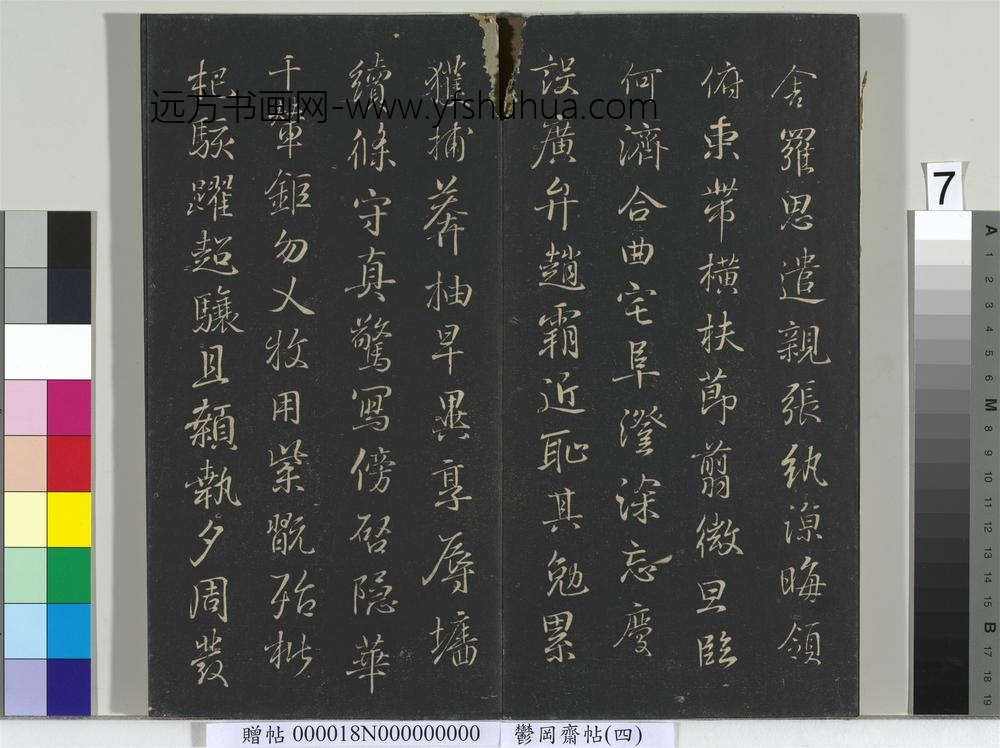 舍羅思遣親張紈涼晦領
俯束帶橫扶節翦微旦臨
何濟合曲宅阜澄塗忘慶
設廣弁趙霸近恥其勉累
獲捕莽抽早異享辱墻
續條守真驚寫傍啓隱華
千軍鉅勿乂牧用紫翫殆枇
杷駭躍超驤且顙執夕周發
远方书画网-www.yfshuhua.com
7
A
1
2
3
4
5
M
8
9
10
11
12
13
14
15
B
17
18
19
贈帖 000018N000000000 鬱岡齋帖(四)